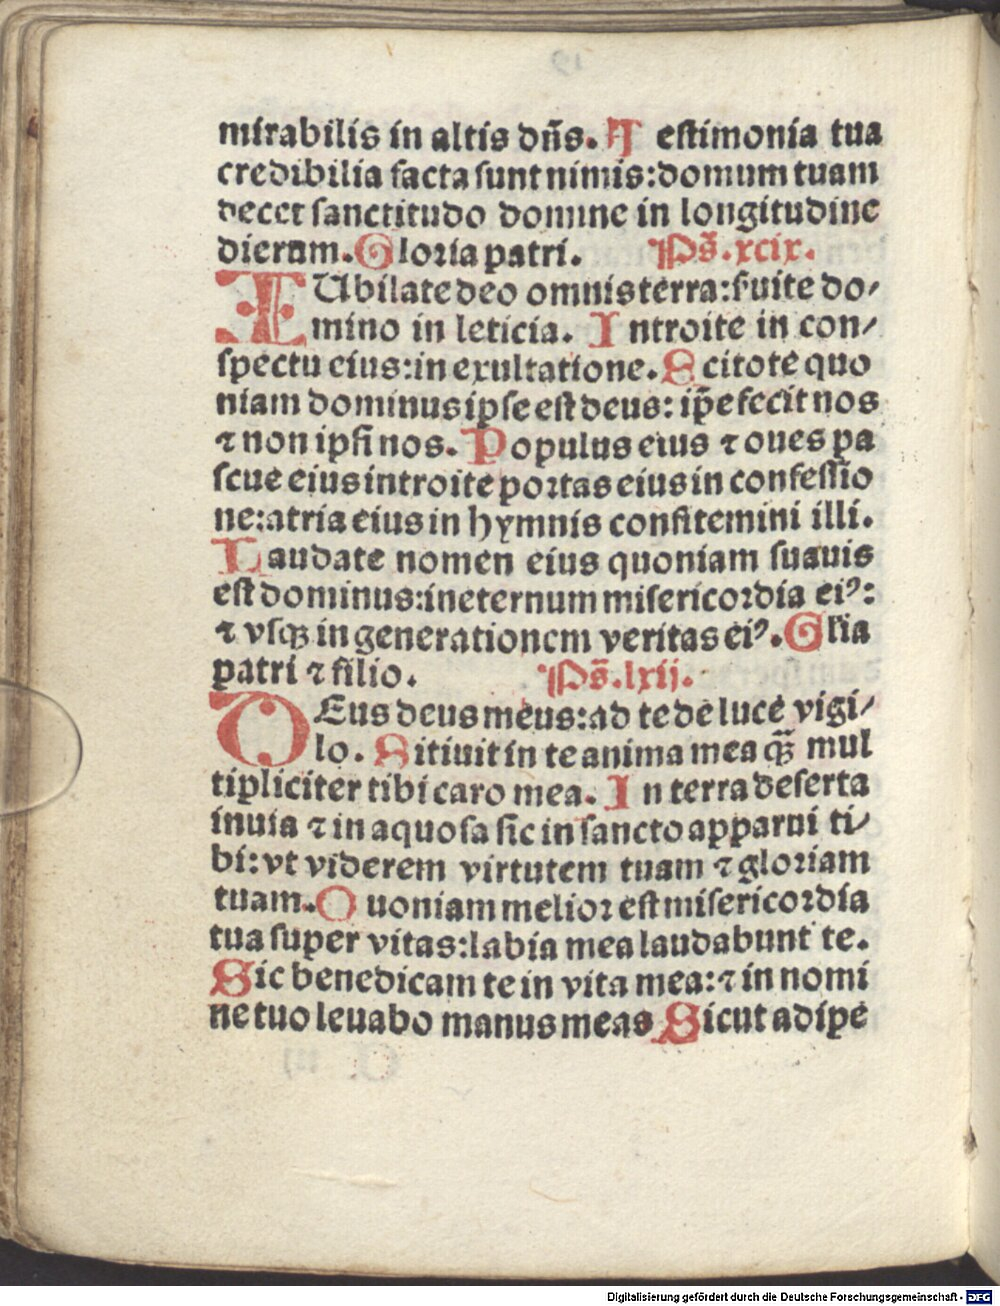 mirabilis in altis dn̄s. T estimonia tua
credibilia facta sunt nimis:domum tuam
decet sanctitudo domine in longitudine
dierum. Gloria patri. Ps̄.xcix.
IUbilate deo omnis terra:ẜuite do⸗
mino in leticia. Introite in con⸗
spectu eius:in exultatione. Scitote quo
niam dominus ipse est deus: ip̄e fecit nos
⁊ non ipsi nos. Populus eius ⁊ oues pa
scue eius introite portas eius in confessio
ne:atria eius in hymnis confitemini illi.
Laudate nomen eius quoniam suauis
est dominus:in eternum misericordia eiꝰ:
⁊ vsqꝫ in generationem veritas eiꝰ. Gl̄ia
patri ⁊ filio. Ps̄.lxij.
DEus deus meus:ad te de luce vigi⸗
lo. Sitiuit in te anima mea qꝫ̄ mul
tipliciter tibi caro mea. In terra deserta
inuia ⁊ in aquosa sic in sancto apparui ti⸗
bi:vt viderem virtutem tuam ⁊ gloriam
tuam. Quoniam melior est misericordia
tua super vitas:labia mea laudabunt te.
Sic benedicam te in vita mea:⁊ in nomi
ne tuo leuabo manus meas Sicut adipe
Digitalisierung gefördert durch die Deutsche Forschungsgemeinschaft - DFG